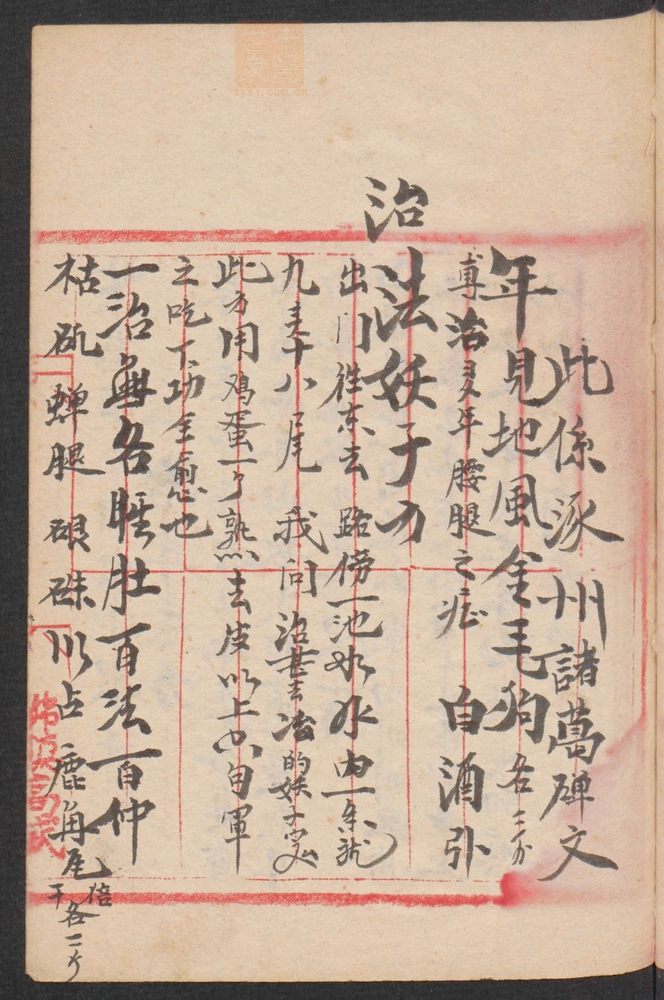 此係涿州諸葛碑文
年見地風金毛狗各二分
專治多年腰腿之症 白酒引
治法妖子方
出門往東去路傍一池水水内一条龍
九頭十八尾我問治甚去治的妖子
此方用鸡蛋一个熟去皮以上六句單
之吃下功全愈也
一治無名腫肚百法百仲
枯矾蝉腿硍硃川占鹿角尾倍子各二分